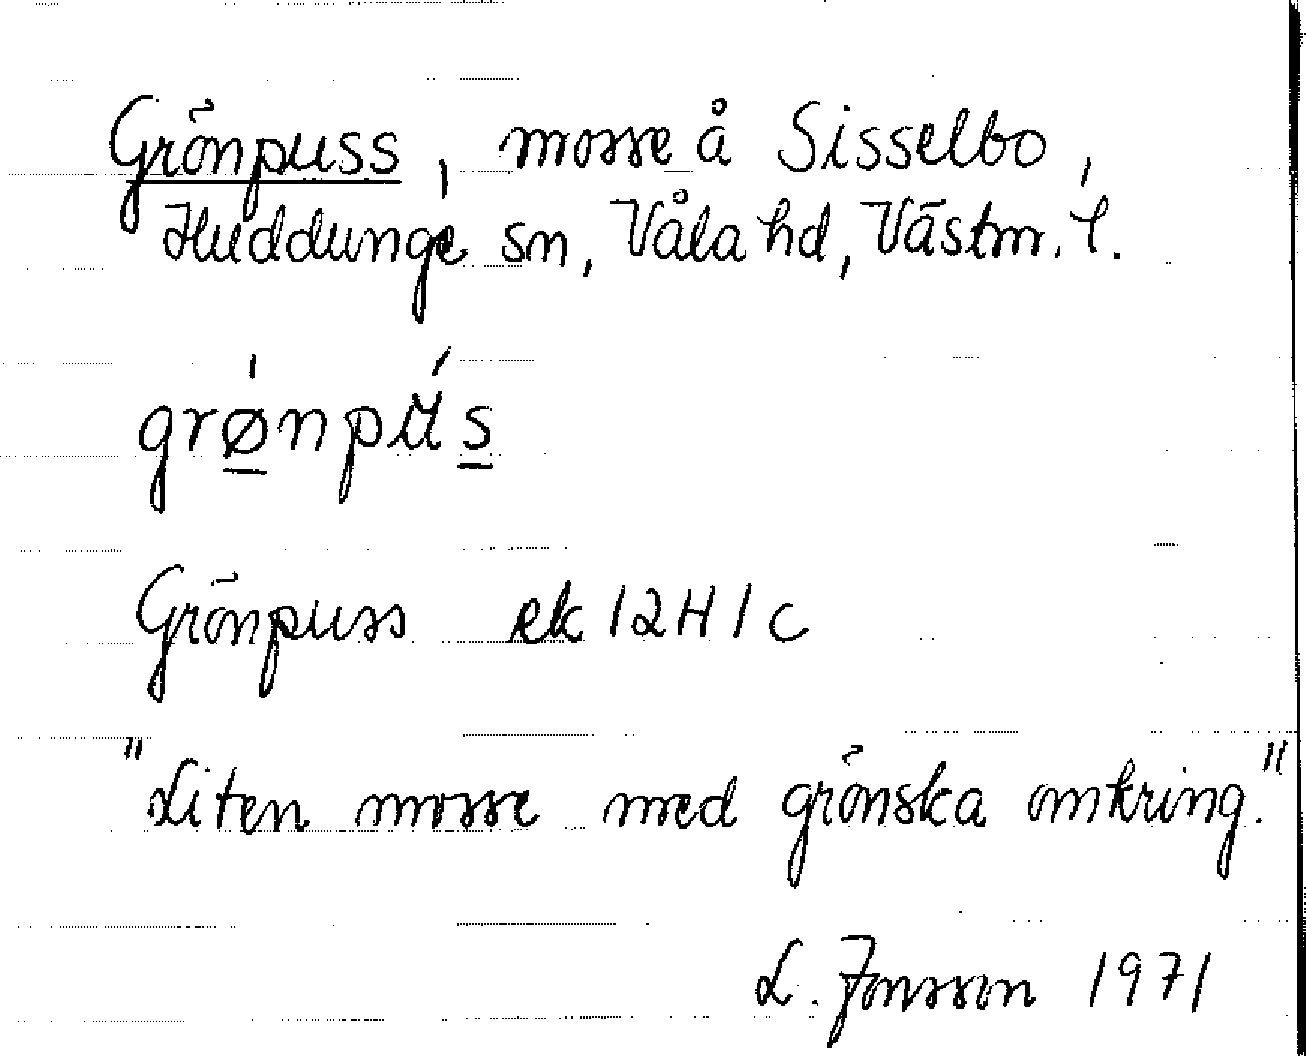 Grönpuss, mosse å Sisselbo,
Huddunge sn, Våla hd, Västm. l.
grø̲̍npʉ́s̲
Grönpuss ek 12H1c
"Liten mosse med grönska omkring."
L. Jonsson 1971